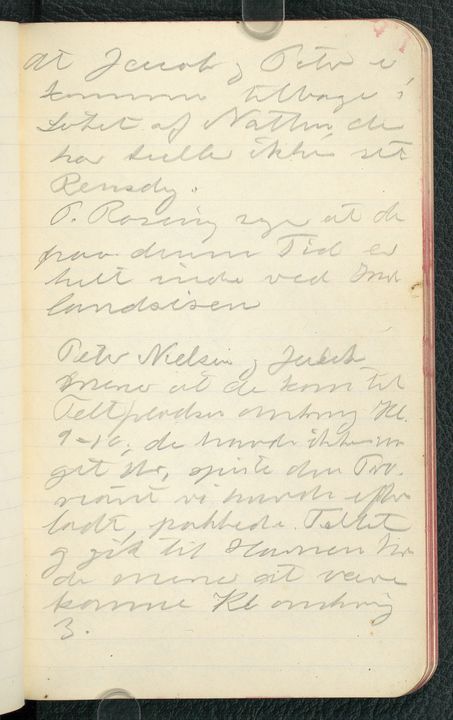 at Jacob og Peter er
komne tilbage i
Løbet af Natten, de
har heller ikke set
Rensdyr.
P. Rosing siger at de
paa denne Tid er
helt inde ved Ind
landsisen
Peter Nielsen og Jakob
mener at de kom til
Teltpladsen omkring Kl.
9-10; de havde ikke no
get Ur, spiste den Pro
viant vi havde efter
ladt, pakkede Teltet
og gik til Havnen hvor
de mener at være
komne Kl omkring
3.